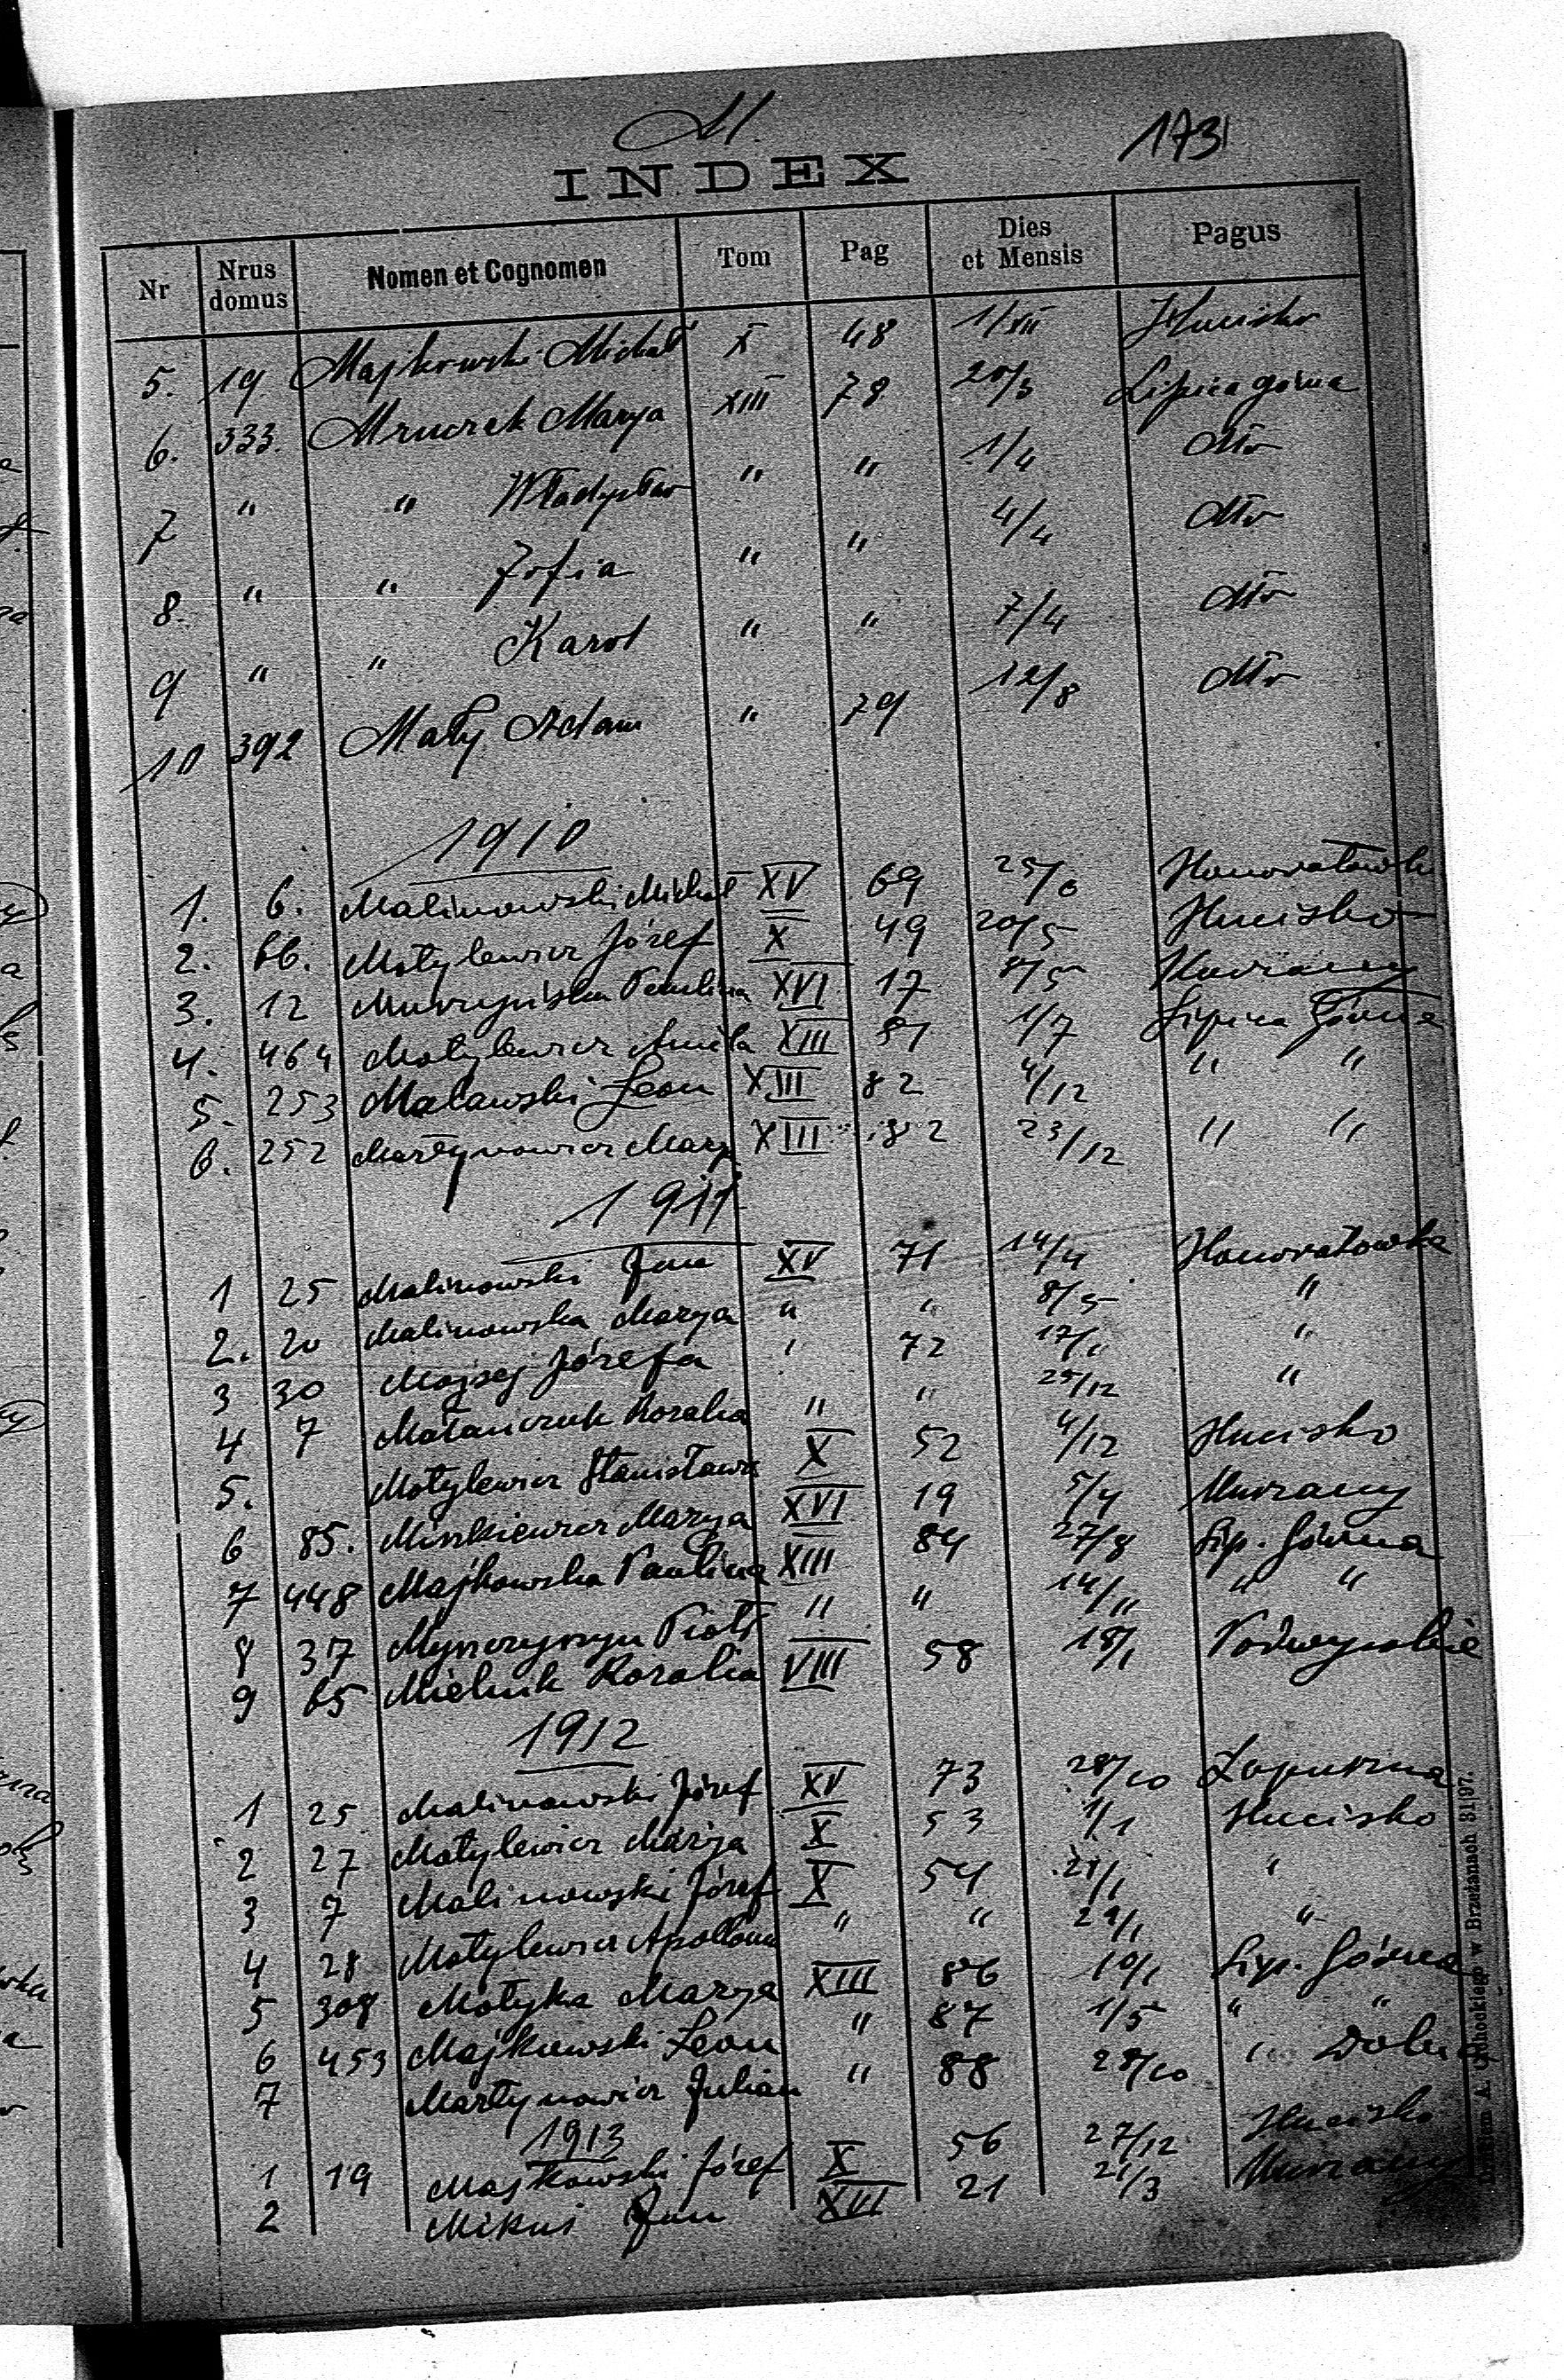 M.
173
INDEX
Nr Nrus domus Nomen et Cognomen Tom Pag Dies et Mensis Pagus
5. 19. Majkowski Michał X 48 1/XII Hucisko
6. 333. Mruczek Marya XIII 78 20/3 Lipica górna
7 " " Władysław " " 1/4 dtto
8. " " Zofia " " 4/4 dtto
9 " " Karol " " 7/4 dtto
10 392 Mały Adam " 79 12/8 dtto
1910
1. 6. Malinowski Michał XV 69 25/6 Honoratówk
2. 66. Motylewicz Józef X 49 20/5 Hucisko
3. 12 Paulina XVI 17 8/5
4. 464 Motylewicz XIII 81 1/7 Lipica Górna
5. 253 Malawski Leon XIII 82 4/12 " "
6. 252 Martynowicz Marya XIII 82 23/12 " "
1911
1 25 Malinowski Jan XV 71 14/4 Honoratówka
2. 20 Malinowska Marya " " 8/5 "
3 30 Mojsej Józefa " 72 17/ "
4 7 Matanczuk Rozalia " " 25/12 "
5. Motylewicz Stanisława X 52 4/12 Hucisko
6 85. Miszkiewicz Marya XVI 19 5/4 Murzany
7 448 Majkowska Paulina XIII 84 27/8 Lip. Górna
8 37 Piotr " " 14/11 " "
9 65 Mielnik Rozalia VIII 58 18/1 Podwysokie
1912
1 25 Malinowski Józef XV 73 28/10 Zapuszna
2 27 Motylewicz Marya X 53 1/1 Hucisko
3 7 Malinowski Józef X 54 21/1 "
4 28 Motylewicz Apolonia " " 29/1 "
5 308 Motyka Marya XIII 86 10/1 Lip. Górna
6 453 Majkowski Leon " 87 1/5 " "
7 Martynowicz Julian " 88 28/10 " Dolna
1913
1 19 Majkowski Józef X 56 27/12 Hucisko
2 Mikuś Jan XVI 21 21/3 Murzany
w Brzeżanach 31|97.